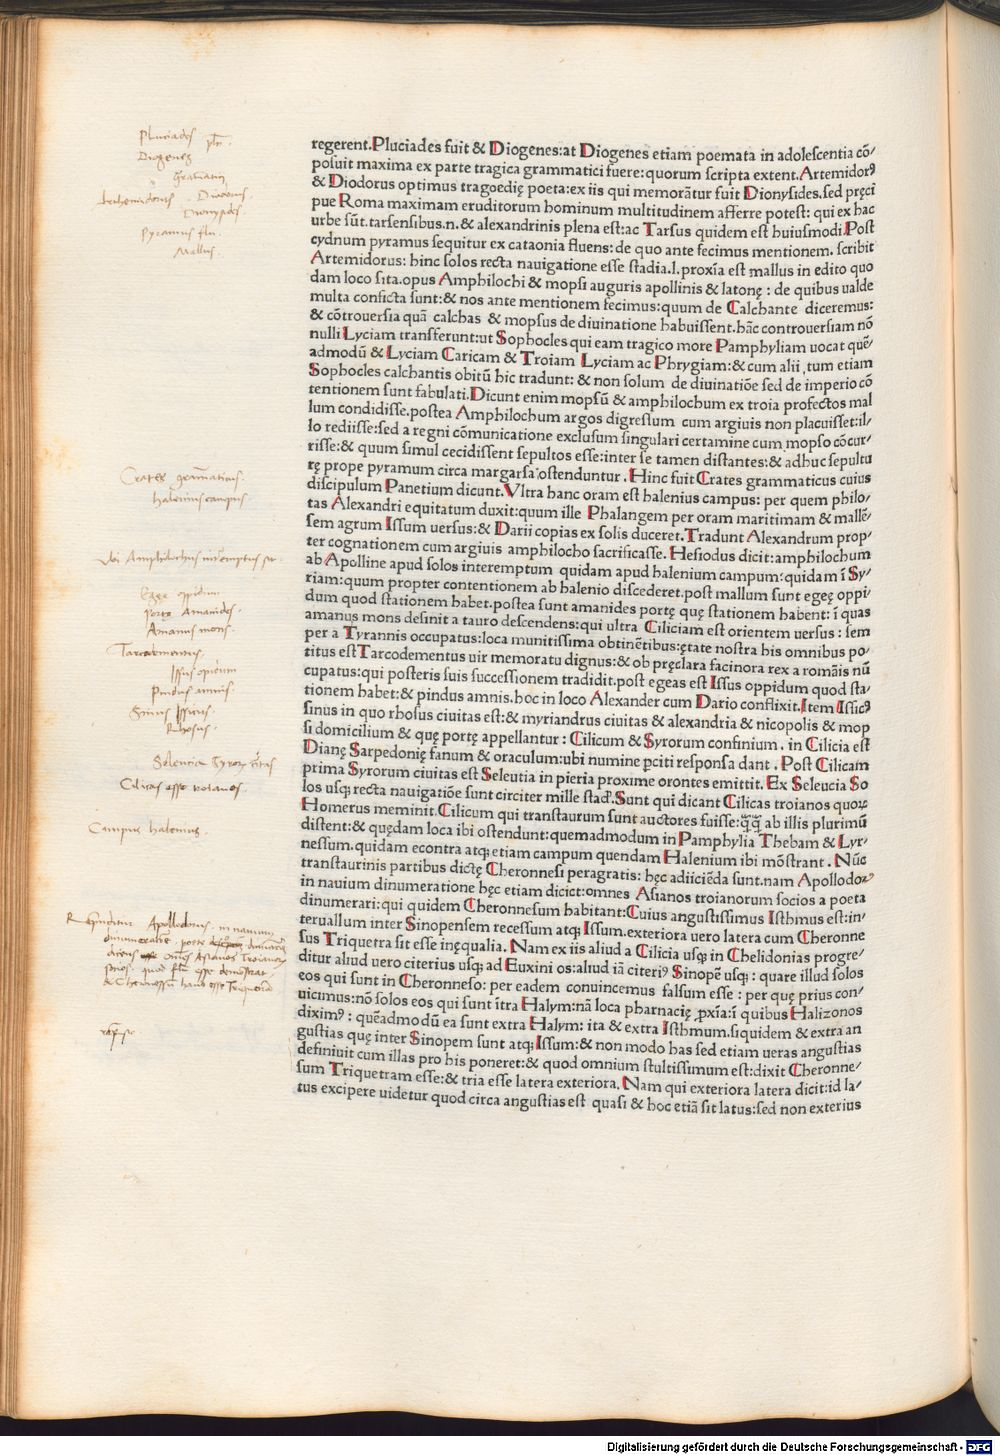 Pluciades
ptr.
Diogenes
Artemidorus . Diodorus.
Dionysides.
Pyramus flu.
Mallus.
Crates grāmaticus.
halenius campus.
Vbi Amphilochus
Egee oppidum
porte Amanides.
Amanus mons.
Tarcodementus.
Issus opidum
Pindus amnis.
Sinus Issicus.
Rhosus.
Cilicas esse troianos.
Campus halenius.
Apollodorus. in nauium
regerent.Pluciades fuit & Diogenes:at Diogenes etiam poemata in adolescentia cō/
posuit maxima ex parte tragica grammatici fuere:quorum scripta extent.Artemidorꝰ
& Diodorus optimus tragoedię poeta:ex iis qui memorātur fuit Dionysides.sed pręci
pue Roma maximam eruditorum hominum multitudinem afferre potest: qui ex hac
urbe sūt.tarsensibus.n.& alexandrinis plena est:ac Tarsus quidem est huiusmodi.Post
cydnum pyramus sequitur ex cataonia fluens: de quo ante fecimus mentionem. scribit
Artemidorus: hinc solos recta nauigatione esse stadia.l. proxīa est mallus in edito quo
dam loco sita.opus Amphilochi & mopsi auguris apollinis & latonę : de quibus ualde
multa conficta sunt:& nos ante mentionem fecimus:quum de Calchante diceremus:
& cōtrouersia quā calchas & mopsus de diuinatione habuissent.hāc controuersiam nō
nulli Lyciam transferunt:ut Sophocles qui eam tragico more Pamphyliam uocat quē/
admodū & Lyciam Caricam & Troiam Lyciam ac Phrygiam:& cum alii tum etiam
Sophocles calchantis obitū hic tradunt: & non solum de diuinatiōe sed de imperio cō
tentionem sunt fabulati.Dicunt enim mopsū & amphilochum ex troia profectos mal
lum condidisse.postea Amphilochum argos digressum cum argiuis non placuisset:il/
lo rediisse:sed a regni cōmunicatione exclusum singulari certamine cum mopso cōcur/
risse:& quum simul cecidissent sepultos esse:inter se tamen distantes:& adhuc sepultu
rę prope pyramum circa margarsa ostenduntur . Hinc fuit Crates grammaticus cuius
discipulum Panetium dicunt.Vltra hanc oram est halenius campus: per quem philo/
tas Alexandri equitatum duxit:quum ille Phalangem per oram maritimam & mallē/
sem agrum Issum uersus:& Darii copias ex solis duceret.Tradunt Alexandrum prop/
ter cognationem cum argiuis amphilocho sacrificasse. Hesiodus dicit:amphilochum
ab Apolline apud solos interemptum quidam apud halenium campum:quidam ī Sy/
riam:quum propter contentionem ab halenio discederet.post mallum sunt egeę oppi/
dum quod stationem habet.postea sunt amanides portę quę stationem habent: ī quas
amanus mons desinit a tauro descendens:qui ultra Ciliciam est orientem uersus : sem
per a Tyrannis occupatus:loca munitissima obtinētibus:ętate nostra his omnibus po/
titus est Tarcodementus uir memoratu dignus:& ob pręclara facinora rex a romāis nū
cupatus:qui posteris suis successionem tradidit.post egeas est Issus oppidum quod sta/
tionem habet:& pindus amnis.hoc in loco Alexander cum Dario conflixit.Item Issicꝰ
sinus in quo rhosus ciuitas est:& myriandrus ciuitas & alexandria & nicopolis & mop
si domicilium & quę portę appellantur : Cilicum & Syrorum confinium . in Cilicia est
Dianę Sarpedonię fanum & oraculum:ubi numine ꝑciti responsa dant . Post Cilicam
prima Syrorum ciuitas est Seleutia in pieria proxime orontes emittit. Ex Seleucia So
los usqꝫ recta nauigatiōe sunt circiter mille stad̄. Sunt qui dicant Cilicas troianos quoꝝ
Homerus meminit.Cilicum qui transtaurum sunt auctores fuisse:q̄q̄ ab illis plurimū
distent:& quędam loca ibi ostendunt:quemadmodum in Pamphylia Thebam & Lyr/
nessum.quidam econtra atqꝫ etiam campum quendam Halenium ibi mōstrant . Nūc
transtaurinis partibus dictę Cheronnesi peragratis: hęc adiiciēda sunt.nam Apollodoꝝ
in nauium dinumeratione hęc etiam dicit:omnes Asianos troianorum socios a poeta
dinumerari:qui quidem Cheronnesum habitant:Cuius angustissimus Isthimus est:in/
teruallum inter Sinopensem recessum atqꝫ Issum.exteriora uero latera cum Cheronne
sus Triquetra sit esse inęqualia. Nam ex iis aliud a Cilicia usqꝫ in Chelidonias progre/
ditur aliud uero citerius usqꝫ ad Euxini os:aliud iā citeriꝰ Sinopē usqꝫ : quare illud solos
eos qui sunt in Cheronneso: per eadem conuincemus falsum esse : per quę prius con/
uicimus:nō solos eos qui sunt ītra Halym:nā loca pharnacię ꝓxīa:ī quibus Halizonos
diximꝰ : quēadmodū ea sunt extra Halym: ita & extra Isthmum.siquidem & extra an
gustias quę inter Sinopem sunt atqꝫ Issum:& non modo has sed etiam ueras angustias
definiuit cum illas pro his poneret:& quod omnium stultissimum est:dixit Cheronne/
sum Triquetram esse:& tria esse latera exteriora. Nam qui exteriora latera dicit:id la/
tus excipere uidetur quod circa angustias est quasi & hoc etiā sit latus:sed non exterius
Digitalisierung gefördert durch die Deutsche Forschungsgemeinschaft - DFG